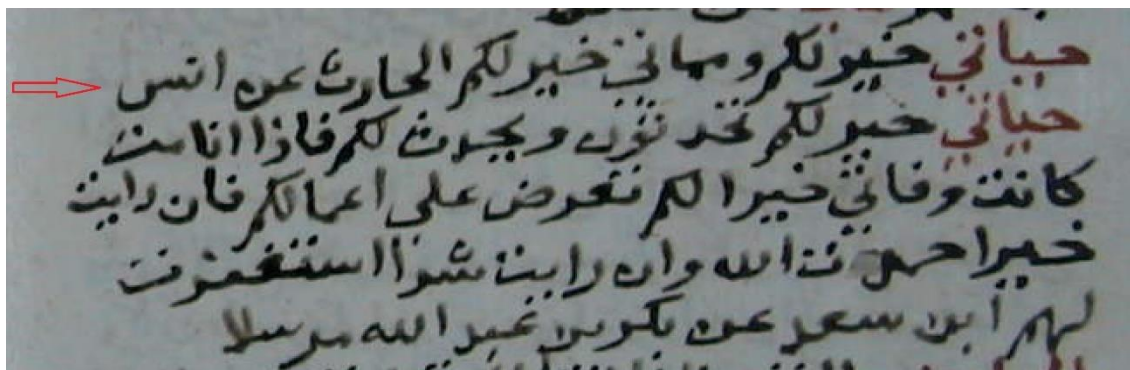 حياتي خير لكم ومماتي خير لكم الحارث عن انس
حياتي خير لكم تحدثون ويحدث لكم فاذا انا مت
كانت وفاتي خيرا لكم تعرض علي اعمالكم فان رايت
خيرا حمدت الله وان رايت شرا استغفرت
لهم ابن سعد عن بكر بن عبد الله مرسلا